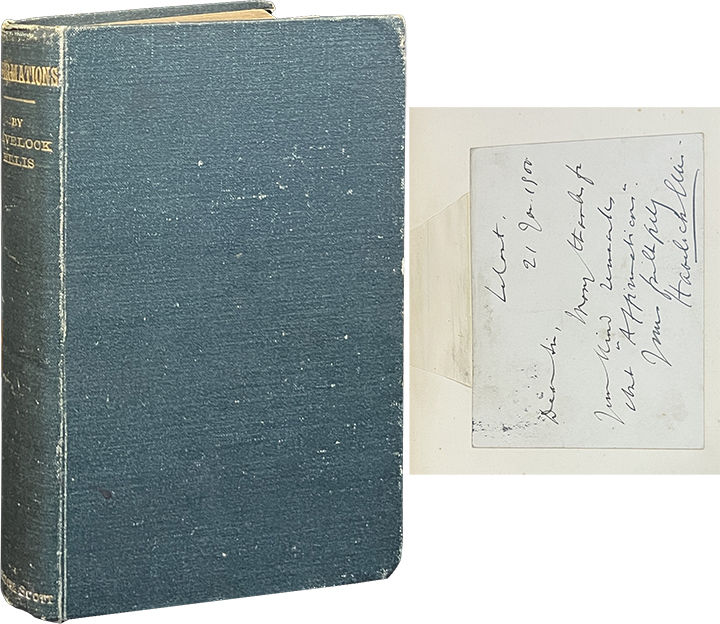 IRMATIONS
BY
VELOCK
ELLIS
SCOTT
Lelant.
21 Jan. 1900
Dear Sir,
Many thanks for
your kind remarks
abt "Affirmations."
Yours faithfully
Havelock Ellis.